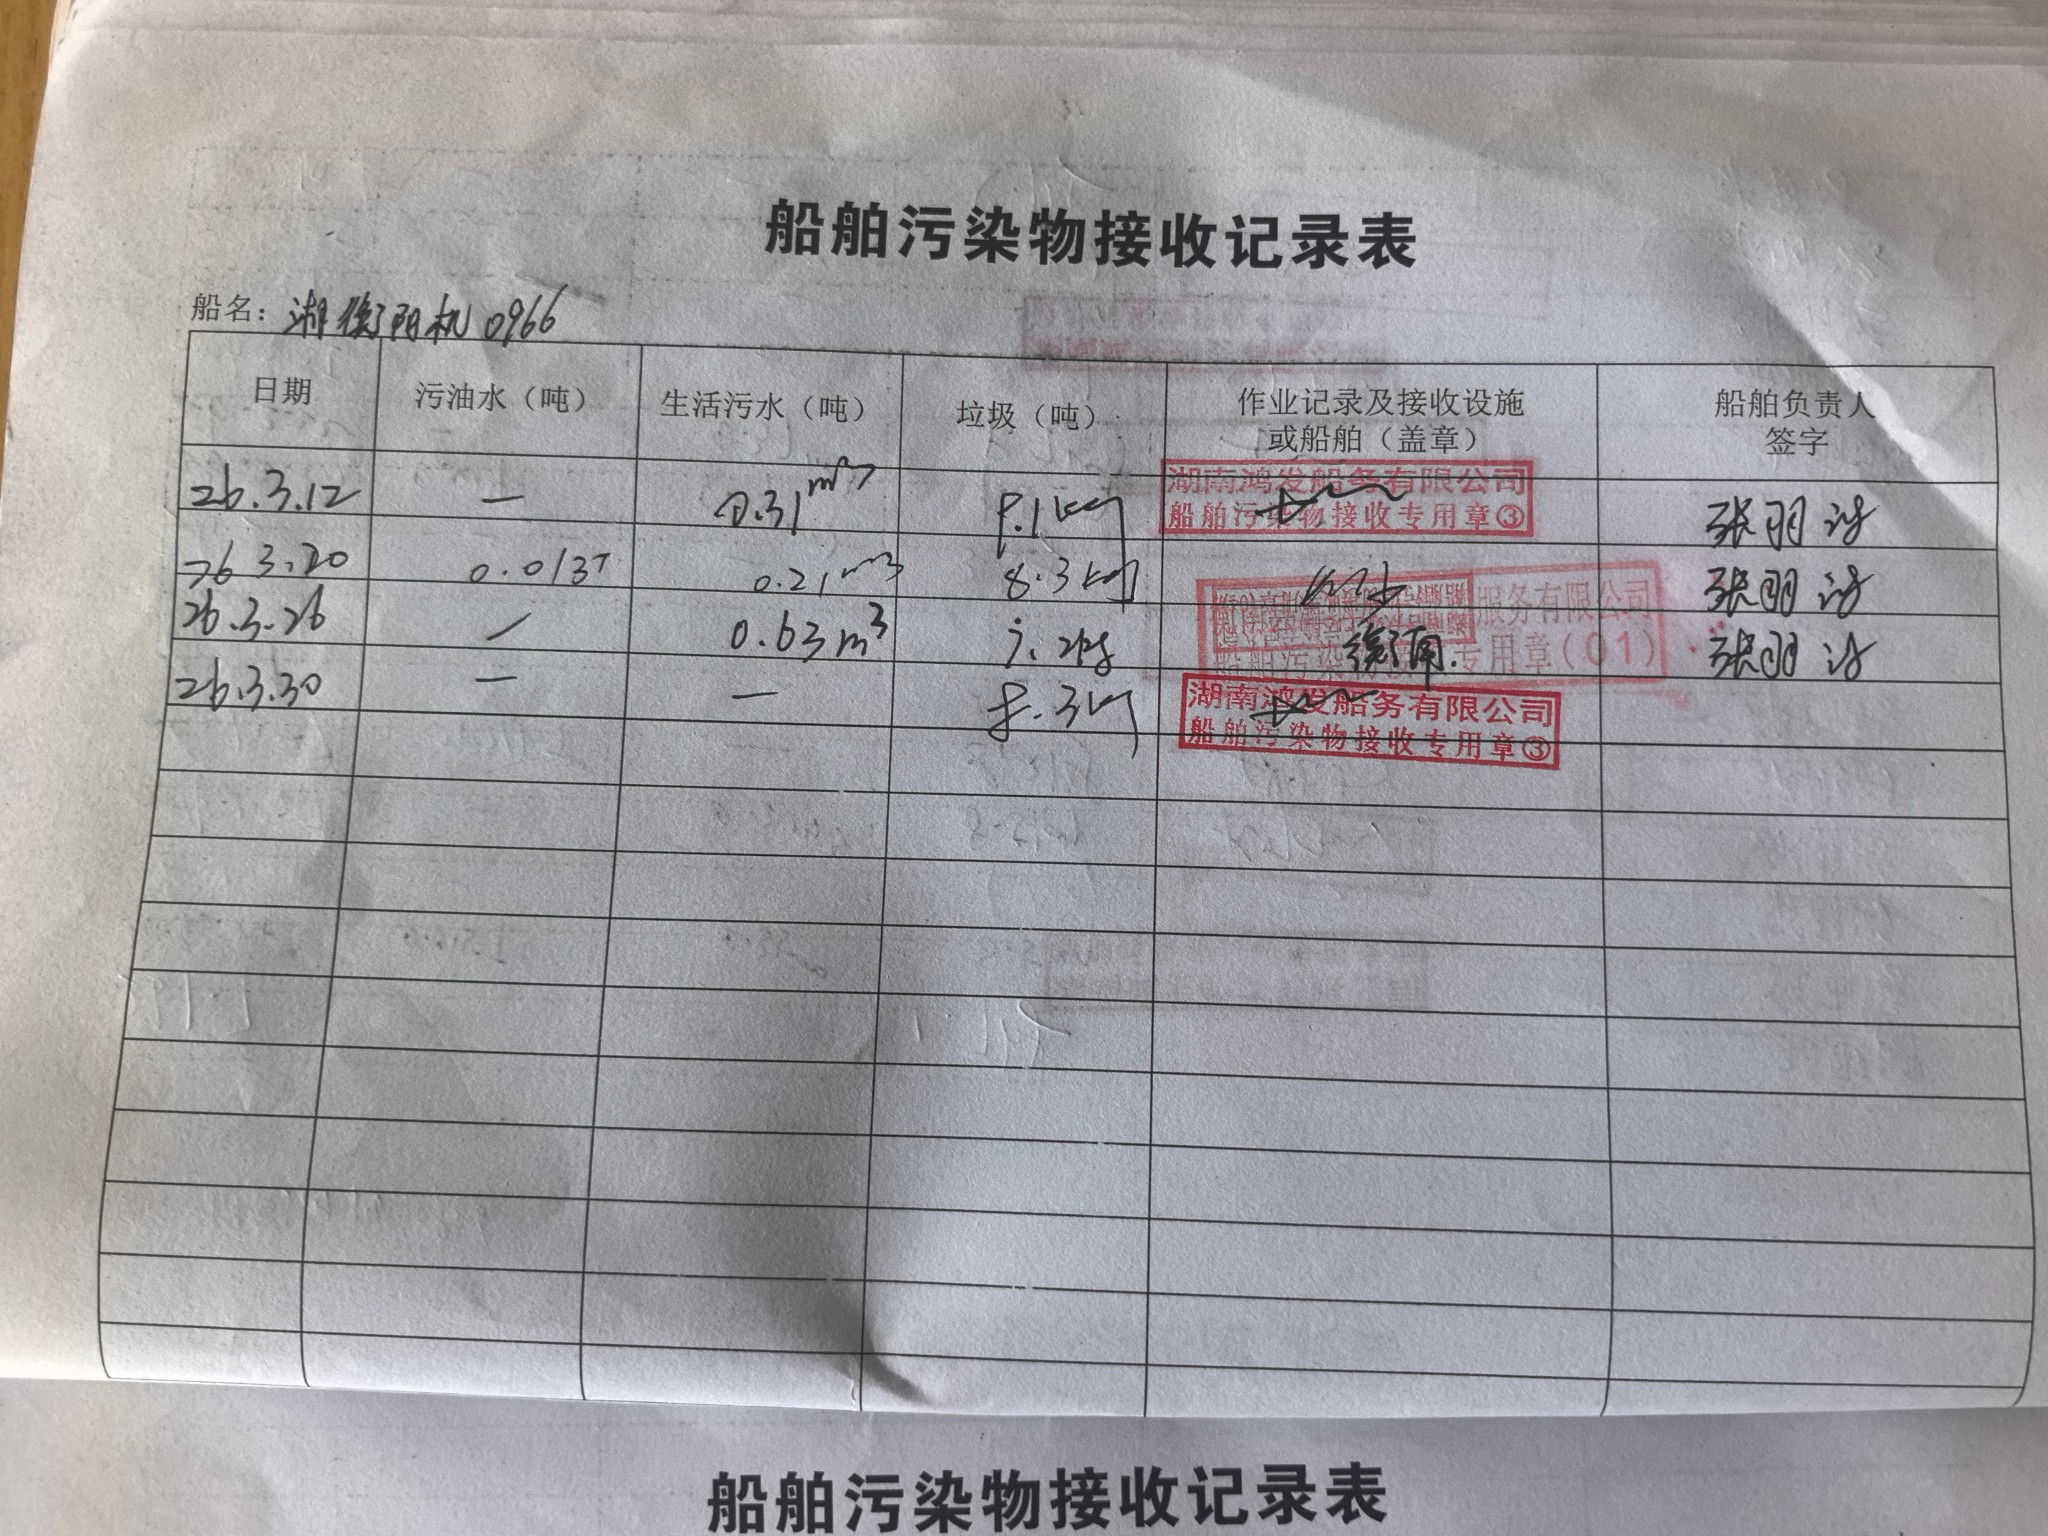 船舶污染物接收记录表
船名：湖衡阳机0966
日期 污油水（吨） 生活污水（吨） 垃圾（吨） 作业记录及接收设施或船舶（盖章） 船舶负责人签字
26.3.12 — 0.31m³ 8.1kg 湖南鸿发船务有限公司 船舶污染物接收专用章③ 张羽
26.3.20 0.013T 0.21m³ 8.3kg 张羽
26.3.26 / 0.63m³ 衡南 服务有限公司 船舶污染物 专用章(01) 张羽
26.3.30 — — 8.3kg 湖南鸿发船务有限公司 船舶污染物接收专用章③
船舶污染物接收记录表